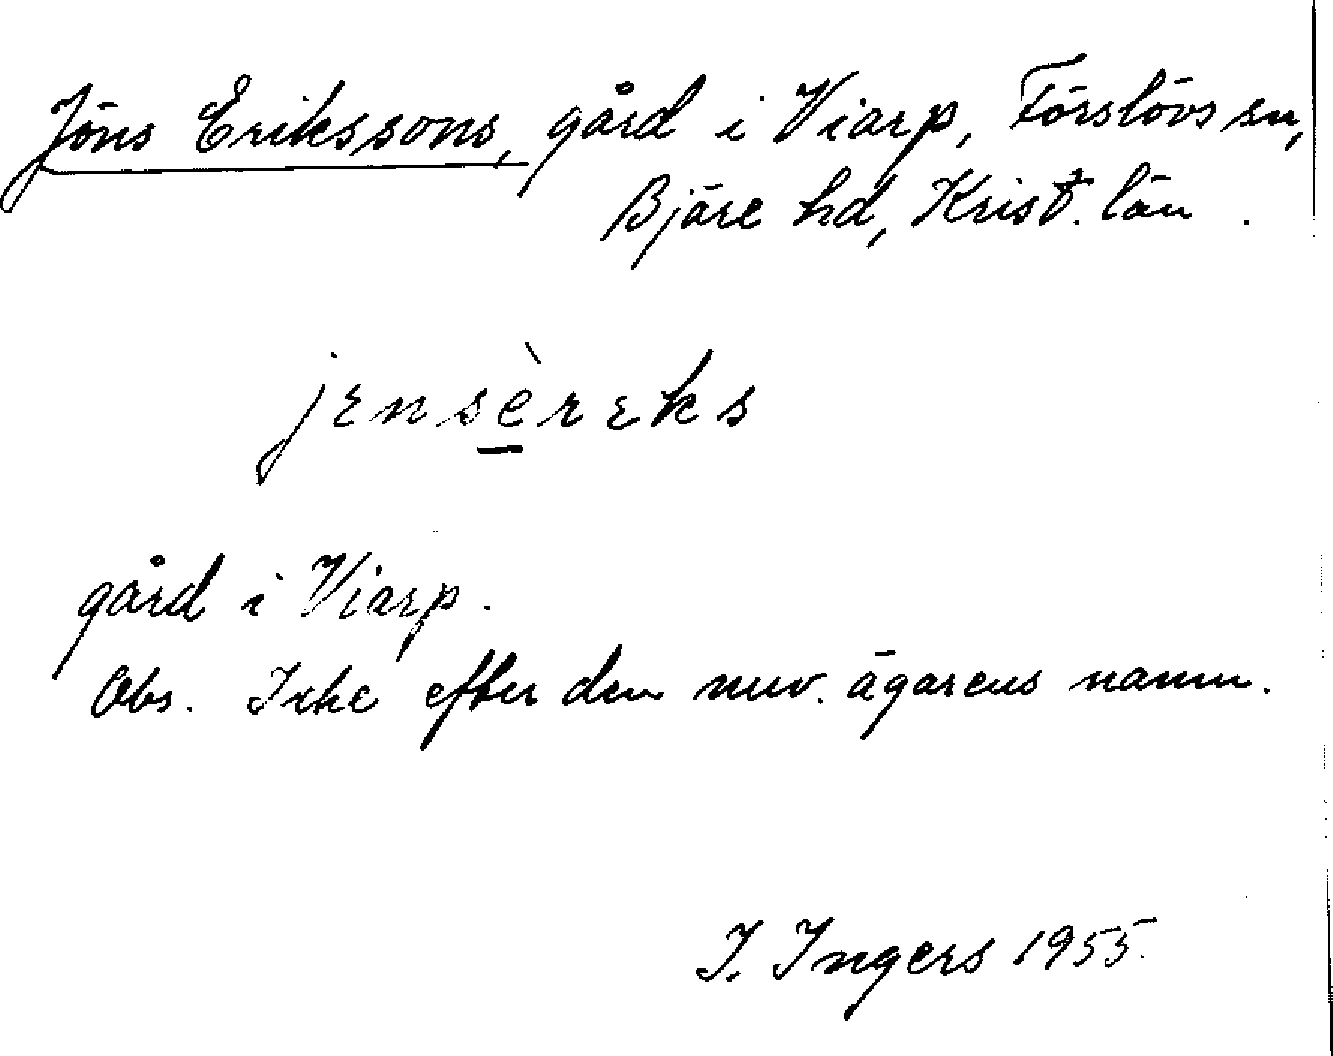 Jöns Erikssons, gård i Viarp, Förslövs sn,
Bjäre hd, Krist. län.
jɛnsèrɛks
gård i Viarp.
Obs. Icke efter den nuv. ägarens namn.
I. Ingers 1955.